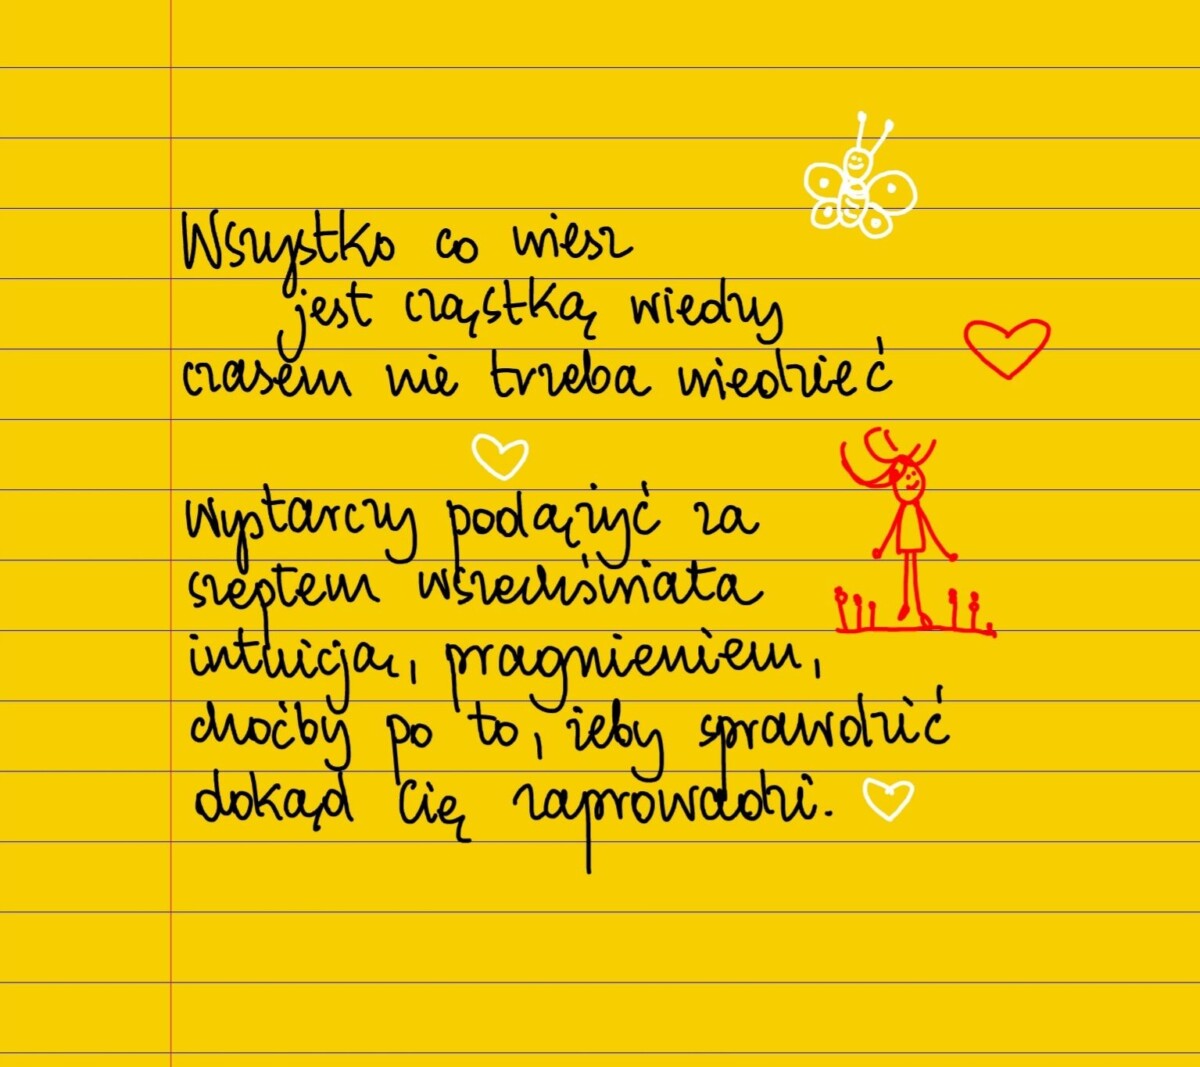 Wszystko co wiesz
jest cząstką wiedzy
czasem nie trzeba wiedzieć
wystarczy podążyć za
szeptem wszechświata
intuicją, pragnieniem,
choćby po to, żeby sprawdzić
dokąd Cię zaprowadzi.